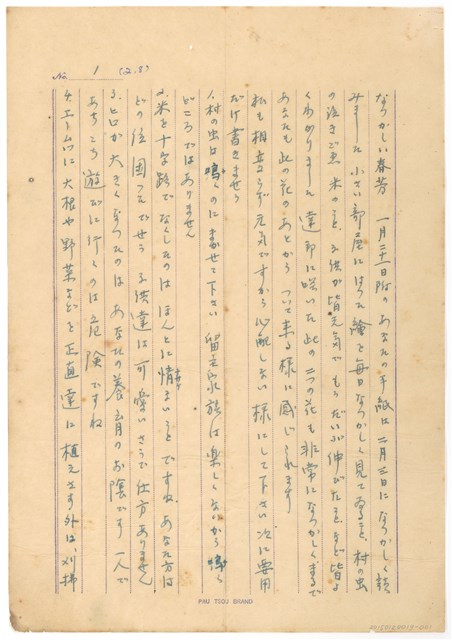 No 1 (2.5)
なつかしい春芳 一月二十一日附のあなたの手紙は二月三日になつかしく読
みました 小さい部屋にはつた絵を毎日なつかしく見てゐること、村の虫
の泣きごゑ 米のこと、子供が皆元気で もうだいぶ伸びたことなど皆よ
くわかりました 達印に咲いた此の二つの花も非常になつかしくまるで
あなたも此の花のあとから ついて来る様に感じられます
私も相変らず元気ですから心配しない様にして下さい 次に要用
だけ書きませう
1.村の虫は鳴くのにまかせて下さい 留守家族は楽しくないから鳴く
どころではありません
2.米を十字路でなくしたのは ほんとに情ないことですね、あなた方は
どの位困つたでせう 子供達は可愛いさうで仕方ありません
3.ヒロが大きくなつたのは あなたの養育のお陰です 一人で
あちこち遊びに行くのは危険ですね
4.に大根や野菜などを正直達に植えさす外は、刈掃
PAU TSOU BRAND